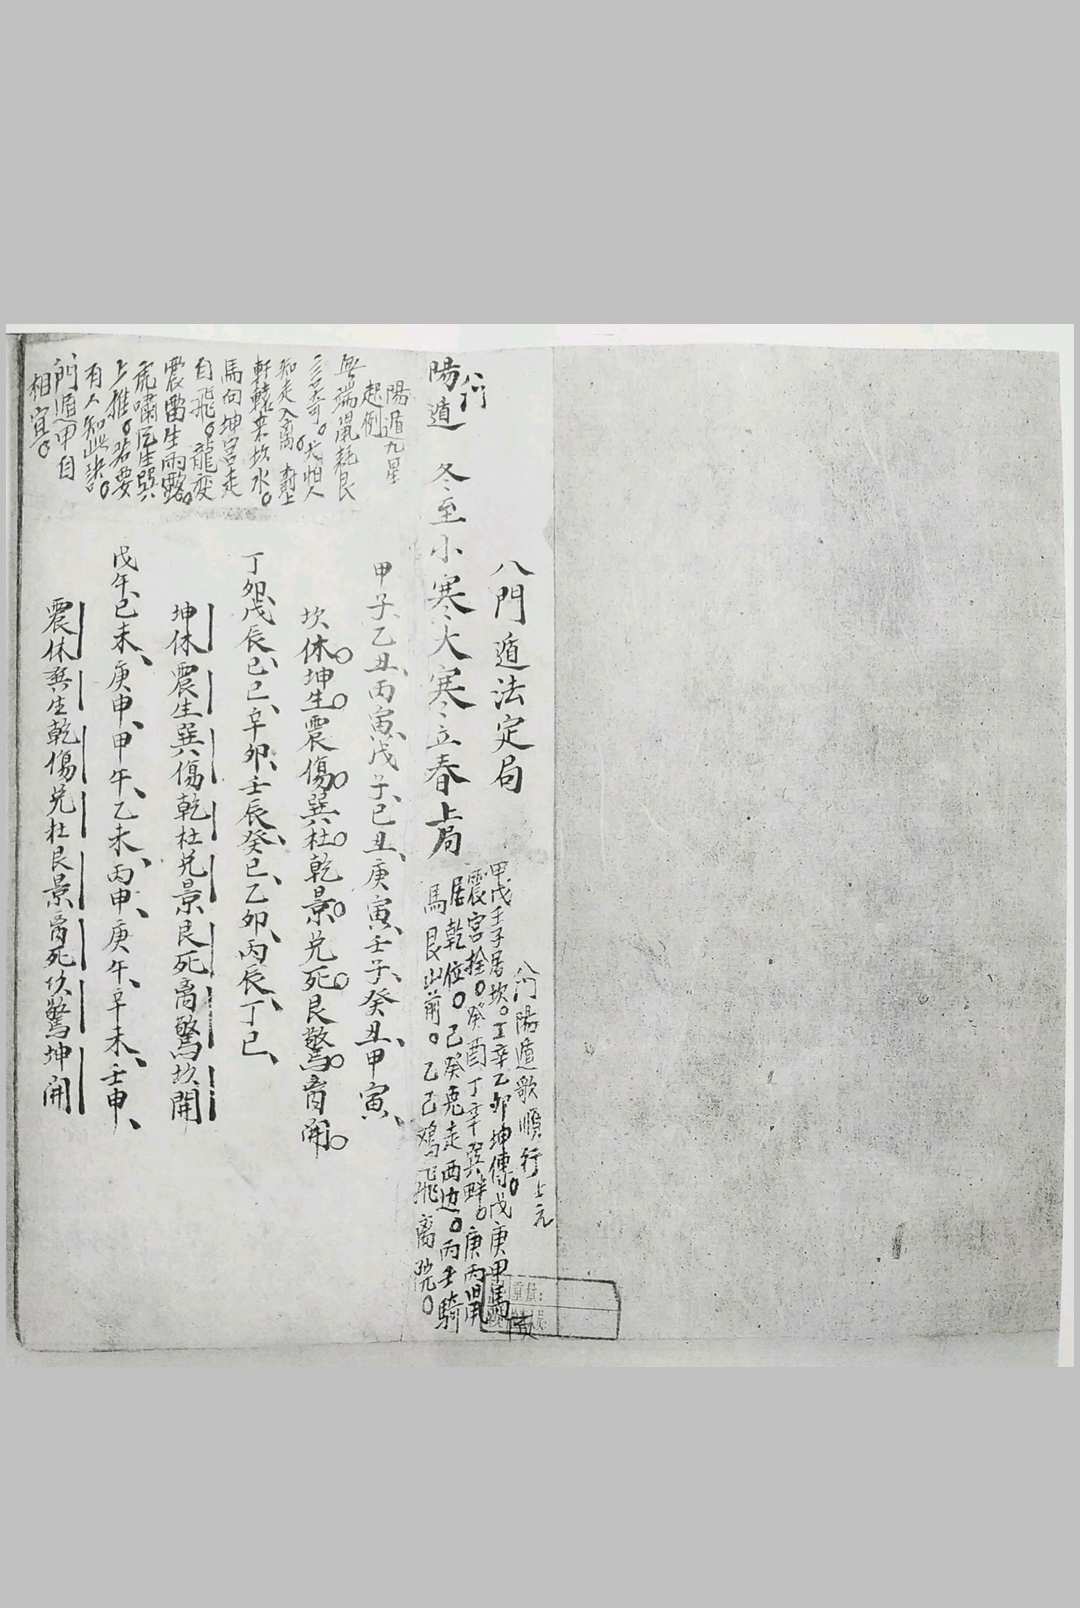 八門遁法定局
八门陽遁歌順行上元
甲戊壬子居坎。丁辛乙卯坤傳。戊庚甲馬
震宫拴。癸酉丁辛巽畔。庚丙鼠
居乾位。己癸兎走西边。丙壬騎
馬艮山前。乙己鸡飛离院。
八门
陽遁 冬至小寒大寒立春上局
陽遁九星
起例
無端鼠耗艮
三至奇。犬怕人
知走入离。對
軒轅来坎水。
馬向坤宫走
自飛。龍变
震雷生雨露。
虎嘯風生巽
上推。若要
有人知此訣。
門遁甲自
相宜。
甲子、乙丑、丙寅、戊子、己丑、庚寅、壬子、癸丑、甲寅、
坎休坤生震傷巽杜乾景兑死艮驚离開
丁卯、戊辰、己巳、辛卯、壬辰、癸巳、乙卯、丙辰、丁巳、
坤休震生巽傷乾杜兑景艮死离驚坎開
戊午、己未、庚申、甲午、乙未、丙申、庚午、辛未、壬申、
震休巽生乾傷兑杜艮景离死坎驚坤開